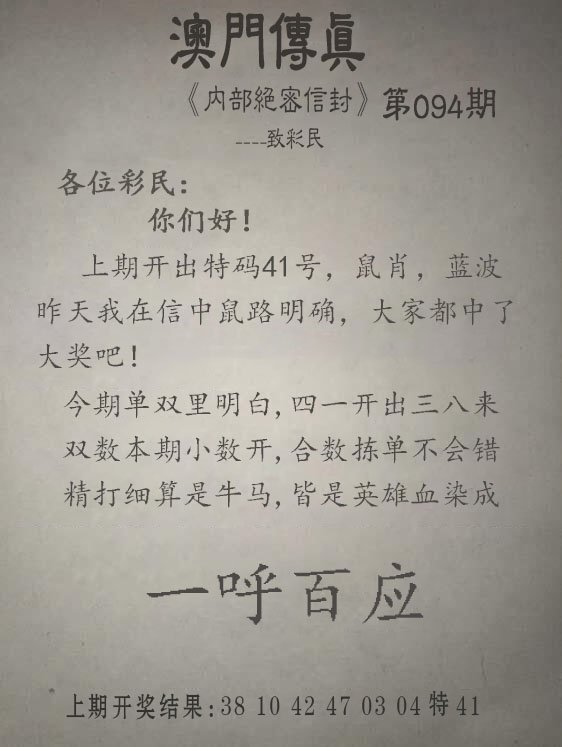 澳門傳眞
《内部絕密信封》第094期
----致彩民
各位彩民:
你们好!
上期开出特码41号，鼠肖，蓝波
昨天我在信中鼠路明确，大家都中了
大奖吧!
今期单双里明白,四一开出三八来
双数本期小数开,合数拣单不会错
精打细算是牛马,皆是英雄血染成
一呼百应
上期开奖结果:38 10 42 47 03 04特41